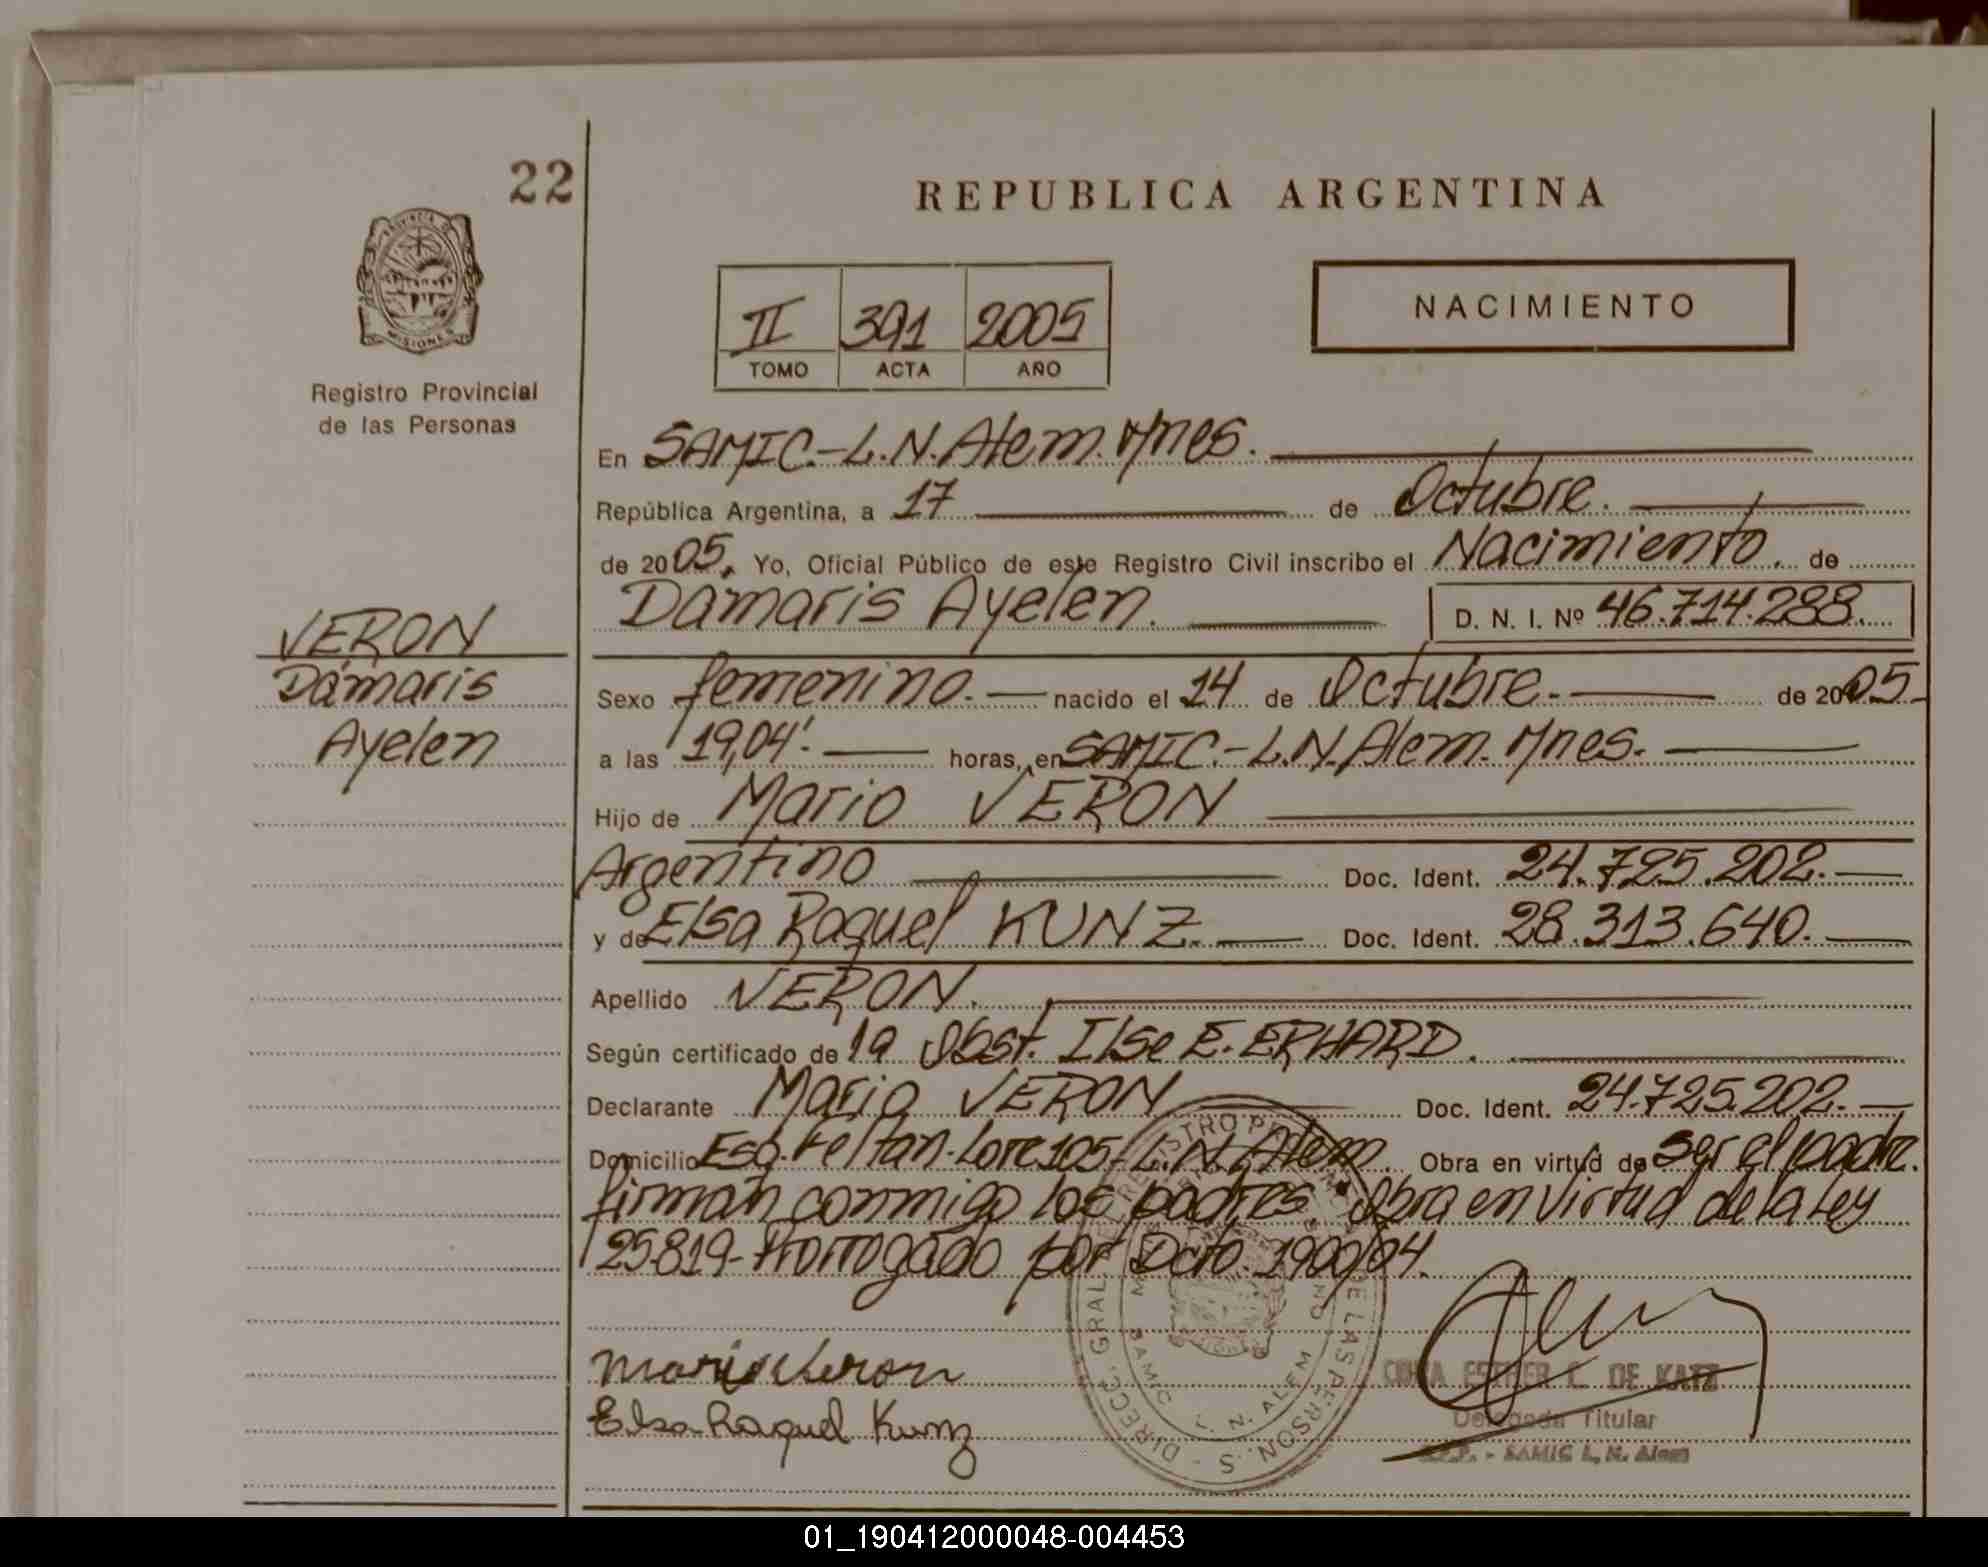 22
PROVINCIA D
MISIONES
Registro Provincial
de las Personas
VERON
Dámaris
Ayelen
REPUBLICA ARGENTINA
II 391 2005
TOMO ACTA AÑO
NACIMIENTO
En SAMIC.-L.N.Alem. Mnes.
República Argentina, a 17 de Octubre.
de 2005. Yo, Oficial Público de este Registro Civil inscribo el Nacimiento. de
Dámaris Ayelen. D. N. I. Nº 46.714.288.
Sexo femenino. nacido el 14 de Octubre. de 2005.-
a las 19,04'. horas, en SAMIC.-L.N.Alem. Mnes.
Hijo de Mario VERON
Argentino Doc. Ident. 24.725.202.
y de Elsa Raquel KUNZ. Doc. Ident. 28.313.640.
Apellido VERON.
Según certificado de la Obst. Ilse E. ERHARD.
Declarante Mario VERON Doc. Ident. 24.725.202.
Domicilio Esq. L.N. Alem. Obra en virtud de Ser el padre.
firman conmigo los padres Obra en virtud de la Ley
25.819-Prorrogado por Dcto. 1900/04.
Mario Veron
Elsa Raquel Kunz
DIRECC. GRAL. DE REGISTRO DE LAS PERSON. S
SAMIC L. N. ALEM
ESTHER C. DE KATZ
Delegada Titular
SAMIC L. N. Alem
01_190412000048-004453